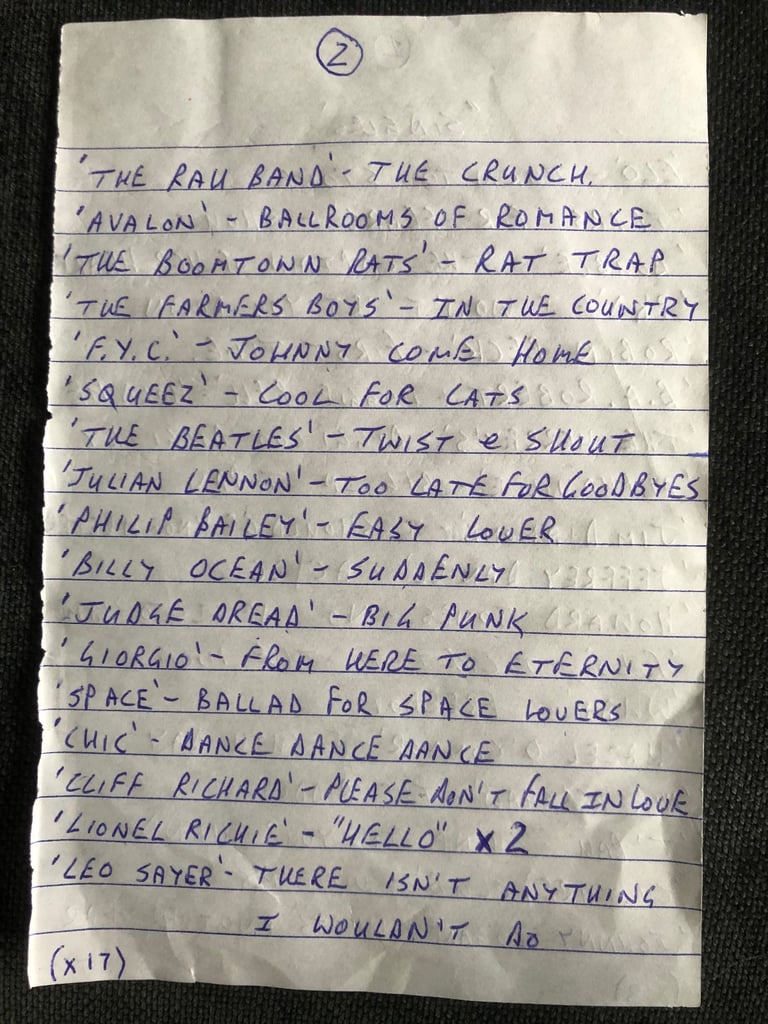 2
'THE RAH BAND' - THE CRUNCH.
'AVALON' - BALLROOMS OF ROMANCE
'THE BOOMTOWN RATS' - RAT TRAP
'THE FARMERS BOYS' - IN THE COUNTRY
'F.Y.C.' - JOHNNY COME HOME
'SQUEEZ' - COOL FOR CATS
'THE BEATLES' - TWIST & SHOUT
'JULIAN LENNON' - TOO LATE FOR GOODBYES
'PHILIP BAILEY' - EASY LOVER
'BILLY OCEAN' - SUDDENLY
'JUDGE DREAD' - BIG PUNK
'GIORGIO' - FROM HERE TO ETERNITY
'SPACE' - BALLAD FOR SPACE LOVERS
'CHIC' - DANCE DANCE DANCE
'CLIFF RICHARD' - PLEASE DON'T FALL IN LOVE
'LIONEL RICHIE' - "HELLO" x 2
'LEO SAYER' - THERE ISN'T ANYTHING
I WOULDN'T DO
(x 17)